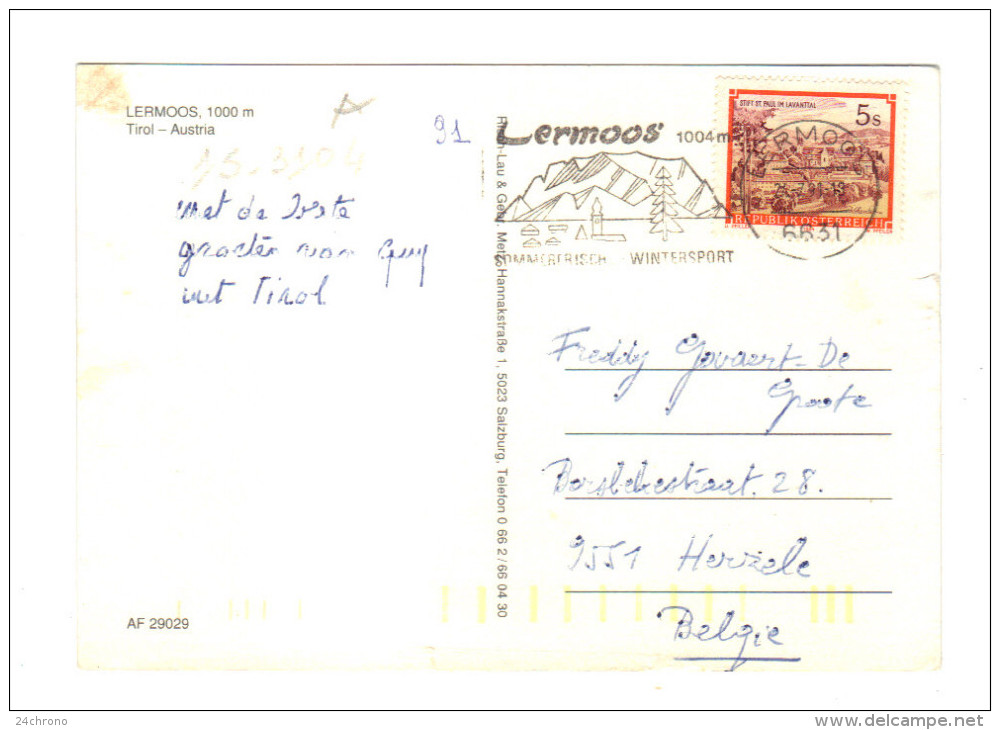 LERMOOS, 1000 m
Tirol – Austria
91
met de beste
groeten van Guy
uit Tirol
AF 29029
Lermoos 1004 m
WINTERSPORT
STIFT ST. PAUL IM LAVANTTAL
5 S
REPUBLIK ÖSTERREICH
LERMOOS
6631
-Lau & Gebr. Metz, Hannakstraße 1, 5023 Salzburg, Telefon 0 66 2/66 04 30
Freddy Govaert-De
Groote
Borsbekestraat. 28.
9551 Herzele
Belgie
24chrono
www.delcampe.net